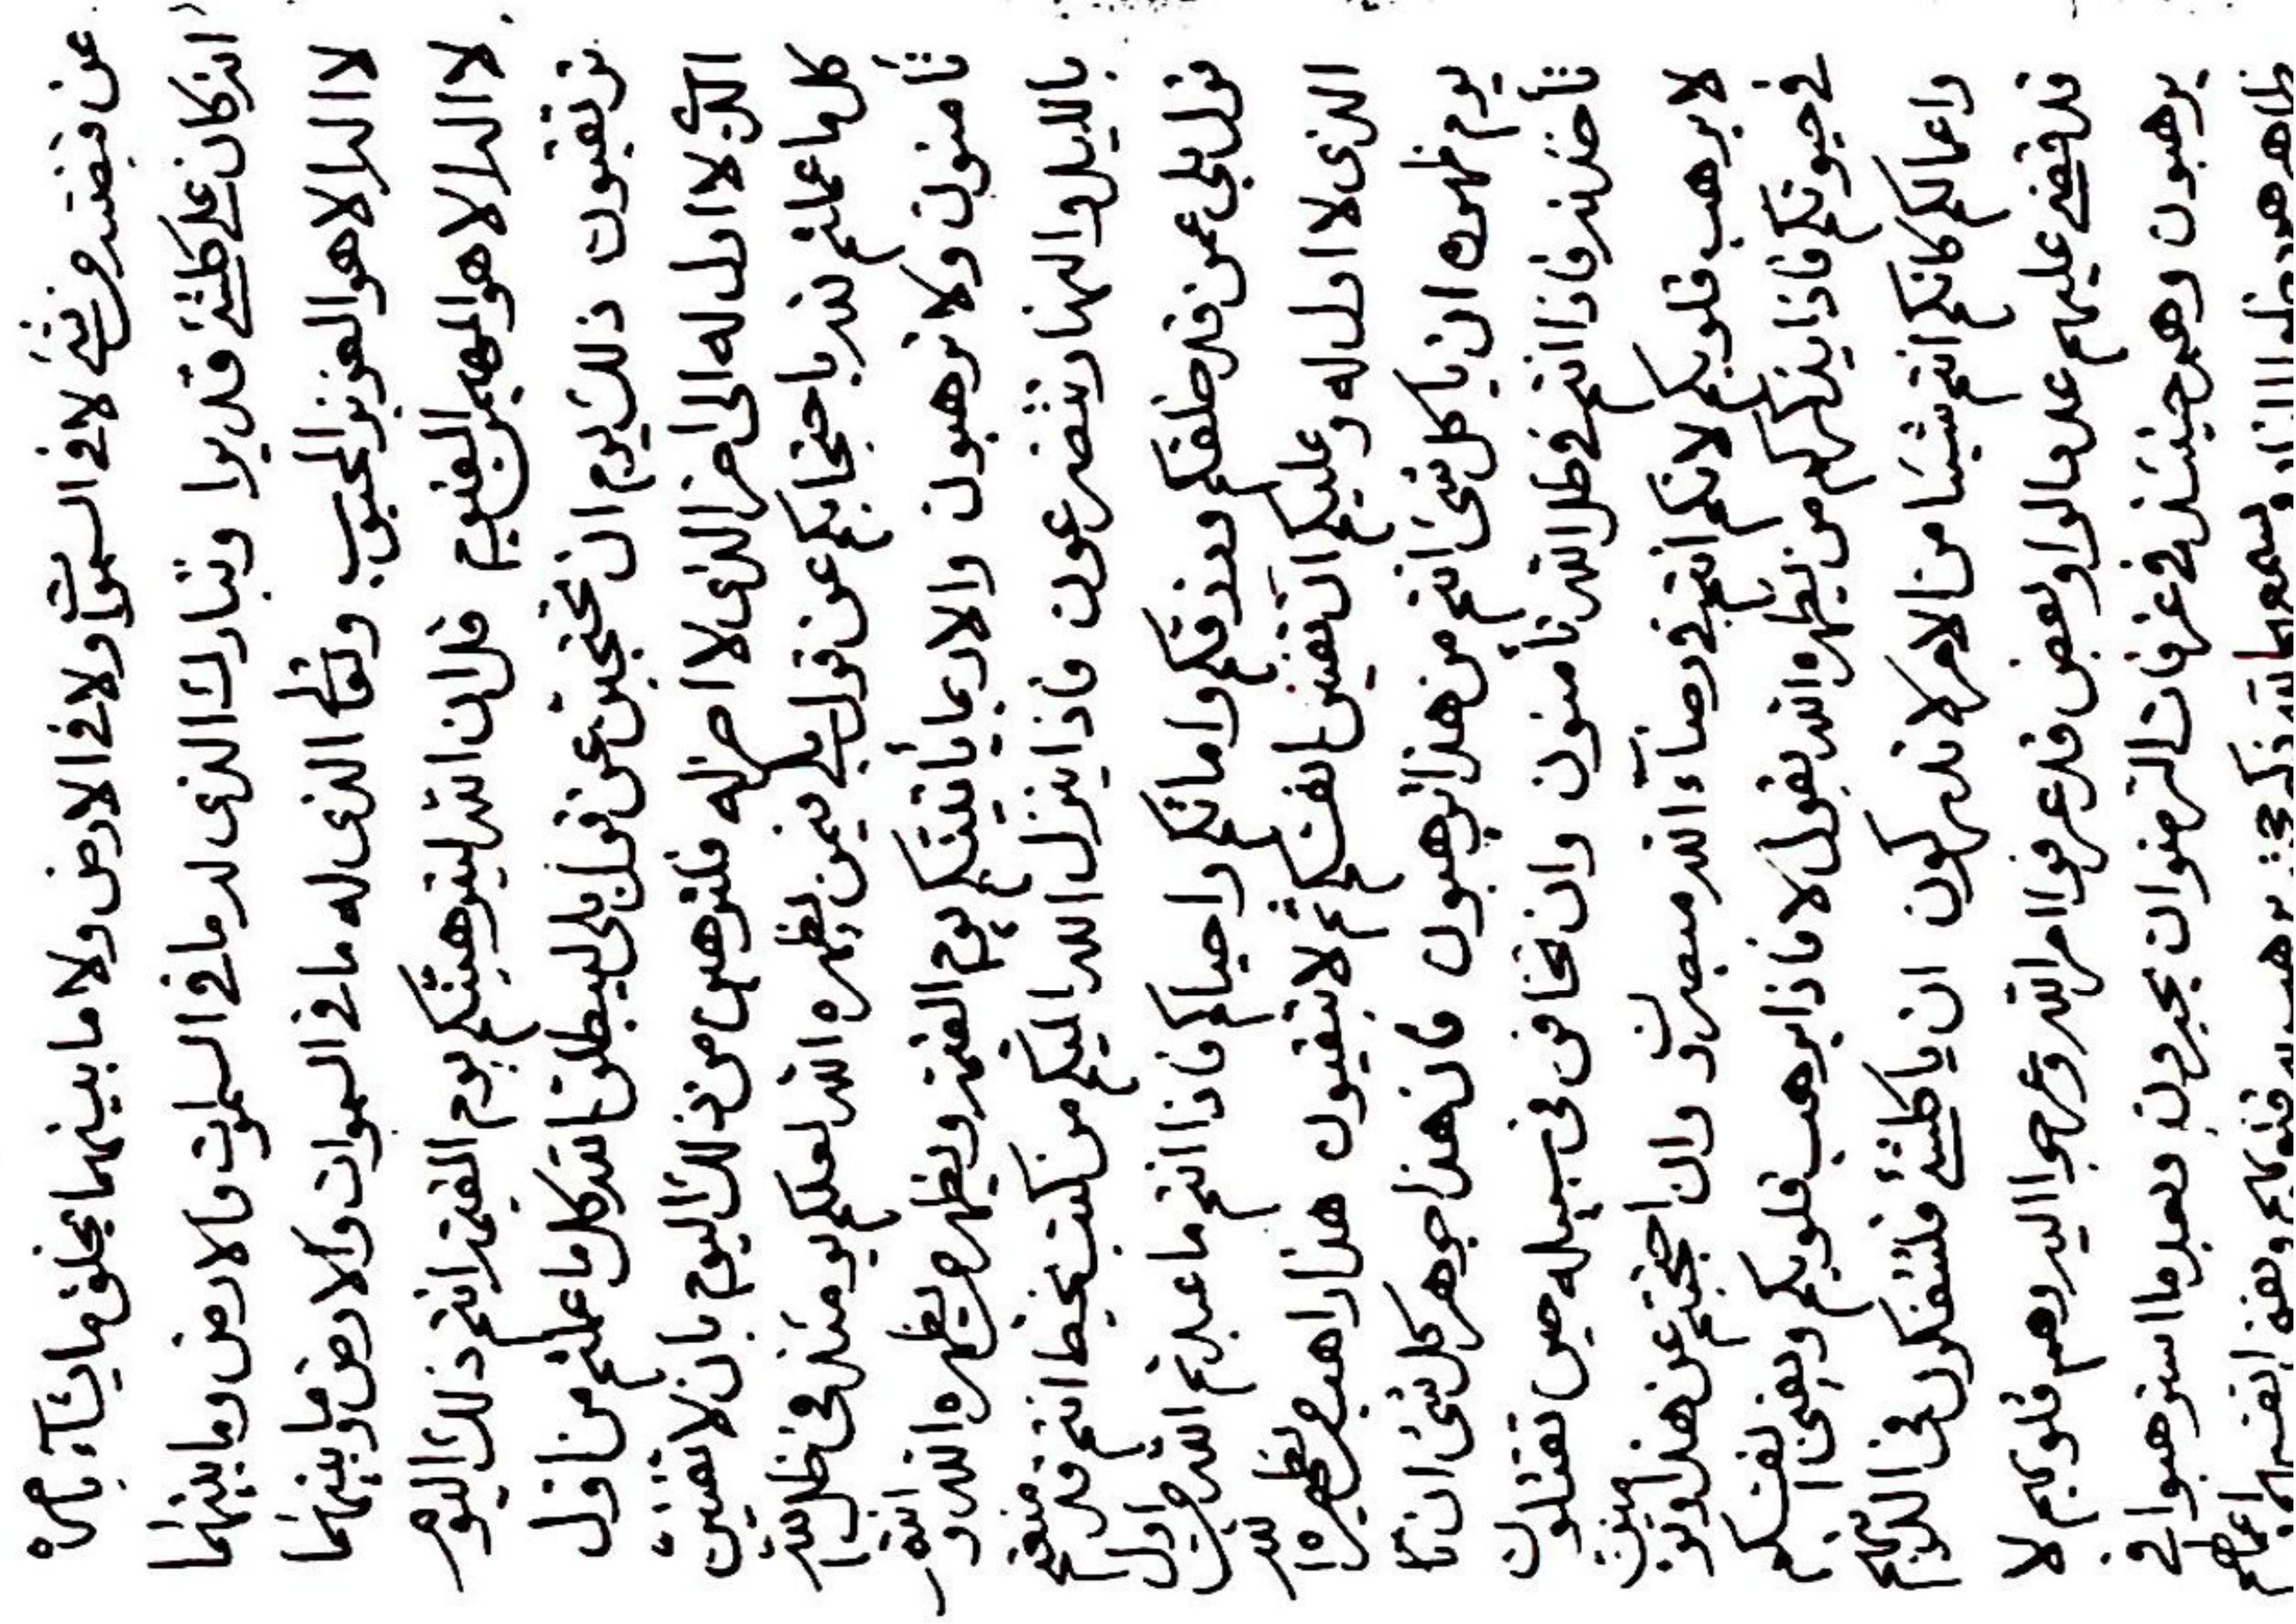 عن قبضته من شئ لا في السموات ولا في الارض ولا ما بينهما يخلق ما يشآء بامره
انه كان على كلشئ قديرا وتبارك الذى له ما في السموات والارض وما بينهما
لا اله الا هو العزيز المحبوب وتعالى الذى له ما في السموات والارض وما بينهما
لا اله الا هو المهيمن القيوم قل ان الله ليرهبنكم يوم القيمة انتم ذلك اليوم
ترتقبون ذلك يوم ان تحتجبن عن قول بلى ليبطلن الله كل ما عملتم من اول
الذى لا اول له الى اخر الذى لا اخر له فلترهبن من ذلك اليوم بان لا تفنين
كل ما عملتم لله باحتجابكم عن قول بلى فيمن يظهره الله لعلكم يومئذ في ظل الله
تأمنون ولا ترهبون والا ربما يأتينكم يوم القيمة ويظهر من يظهره الله وانتم
بالليل والنهار تتضرعون فاذا ينزل الله اليكم من كتب بخط انتم قد منعتم
قول بلى عمن قد خلقكم ورزقكم واماتكم واحياكم فاذا انتم ما عبدتم الله من اول
الذى لا اول له وعليكم ان تفنين انفسكم ثم لا تبقيون هذا راهب من يظهره الله
يوم ظهوره ان يا كل شئ انتم من هذا ترهبون فان هذا جوهر كل شئ ان تا
تأخذنه فاذا انتم في ظل الله تأمنون وان تخافن في سبيله حين تقتلون
لا يرهب قلوبكم لانكم انتم في رضآء الله وان احتجبتم عن هذا
في حيوتكم فاذا يذكركم من يظهره الله بقول لا فاذا يرهب قلوبكم ويفنى انفسكم
واعمالكم كانكم انتم شيئا من الامر لا تدركون ان يا كلشئ فلتتفكرون في الذينهم
قد قضى عليهم بعض قد عرفوا امر الله وعرجوا اليه وهم قلوبهم لا
يرهبون وهم حينئذ في غرفات الرضوان يحبرون بعد ما استرهبوا في